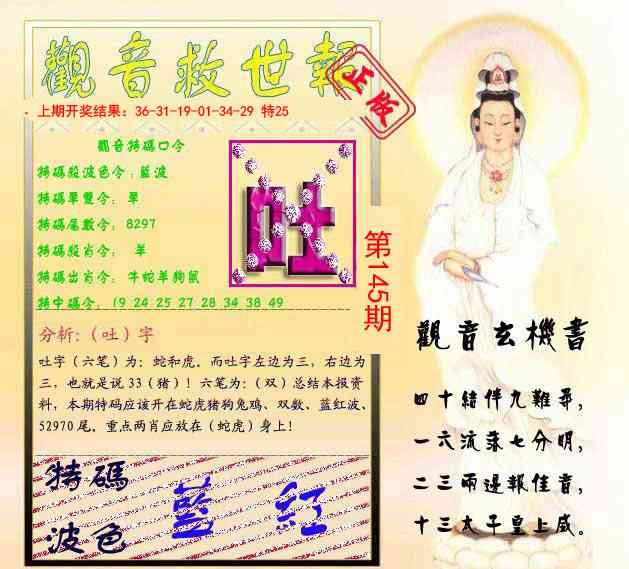 觀音救世報
正版
上期开奖结果：36-31-19-01-34-29 特25
觀音特碼口令
特碼殺波色令：藍波
特碼單雙令：單
特碼尾數令：8297
特碼殺肖令： 羊
特碼出肖令：牛蛇羊狗鼠
特中碼令：19 24 25 27 28 34 38 49
吐
第145期
分析：（吐）字
吐字（六笔）为：蛇和虎。而吐字左边为三，右边为
三，也就是说 33（猪）！六笔为：（双）总结本报资
料，本期特码应该开在蛇虎猪狗兔鸡、双数、蓝红波、
52970 尾。重点两肖应放在（蛇虎）身上！
特碼
波色
藍 紅
觀音玄機書
四十結伴九難尋，
一六流落七分明，
二三兩邊報佳音，
十三太子皇上威。